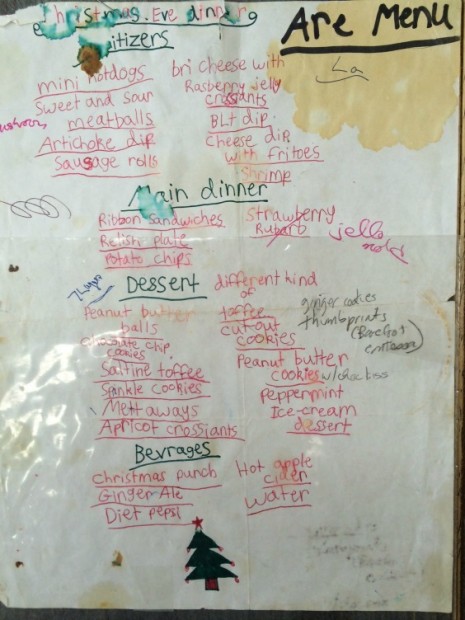 Christmas. Eve dinner
Are Menu
itizers
mini hotdogs
Sweet and Sour
meatballs
Artichoke dip
Sausage rolls
bri cheese with
Rasberry jelly
crossants
BLt dip
Cheese dip
with fritoes
Shrimp
Main dinner
Ribbon Sandwiches
Relish plate
Potato chips
Strawberry
Rubarb
jello
Dessert
Peanut butter
balls
Chocolate chip
cookies
Saltine toffee
Sprinkle cookies
Meltaways
Apricot crossiants
different kind
of
toffee
cut-out
cookies
Peanut butter
cookies w/choc kiss
Peppermint
Ice-cream
dessert
ginger cookies
thumbprints
Bevrages
Christmas punch
Ginger Ale
Diet pepsi
Hot apple
cider
water